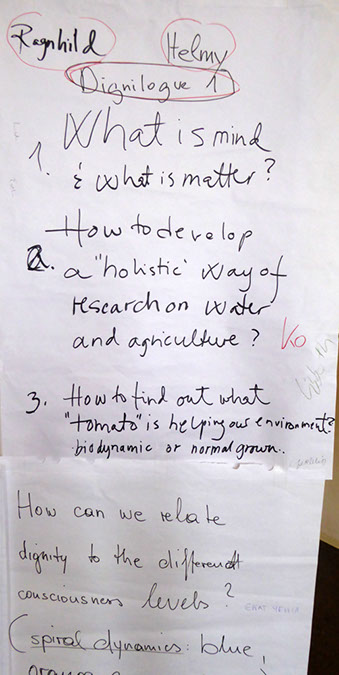 Ragnhild Helmy
Dignilogue 1
1. What is mind
& what is matter?
How to develop
2. a "holistic" way of
research on water
and agriculture? Ko
3. How to find out what
"tomato" is helping our environment?
biodynamic or normal grown.
How can we relate
dignity to the different
consciousness levels?
(spiral dynamics: blue,